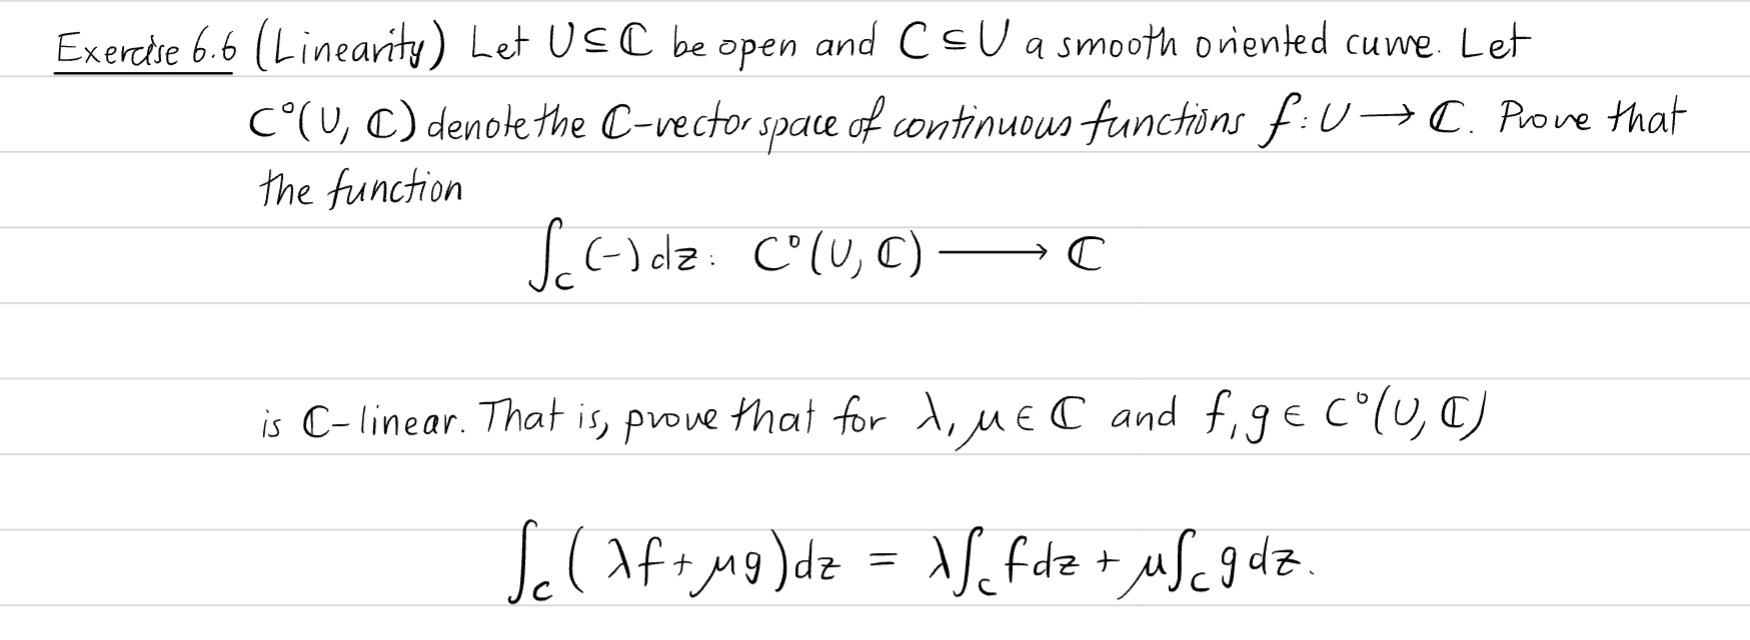 Exercise 6.6 (Linearity) Let U ⊆ ℂ be open and C ⊆ U a smooth oriented curve. Let
C⁰(U, ℂ) denote the ℂ-vector space of continuous functions f: U → ℂ. Prove that
the function
∫_C (-) dz : C⁰(U, ℂ) ⟶ ℂ
is ℂ-linear. That is, prove that for λ, μ ∈ ℂ and f, g ∈ C⁰(U, ℂ)
∫_C (λf + μg) dz = λ∫_C f dz + μ∫_C g dz.